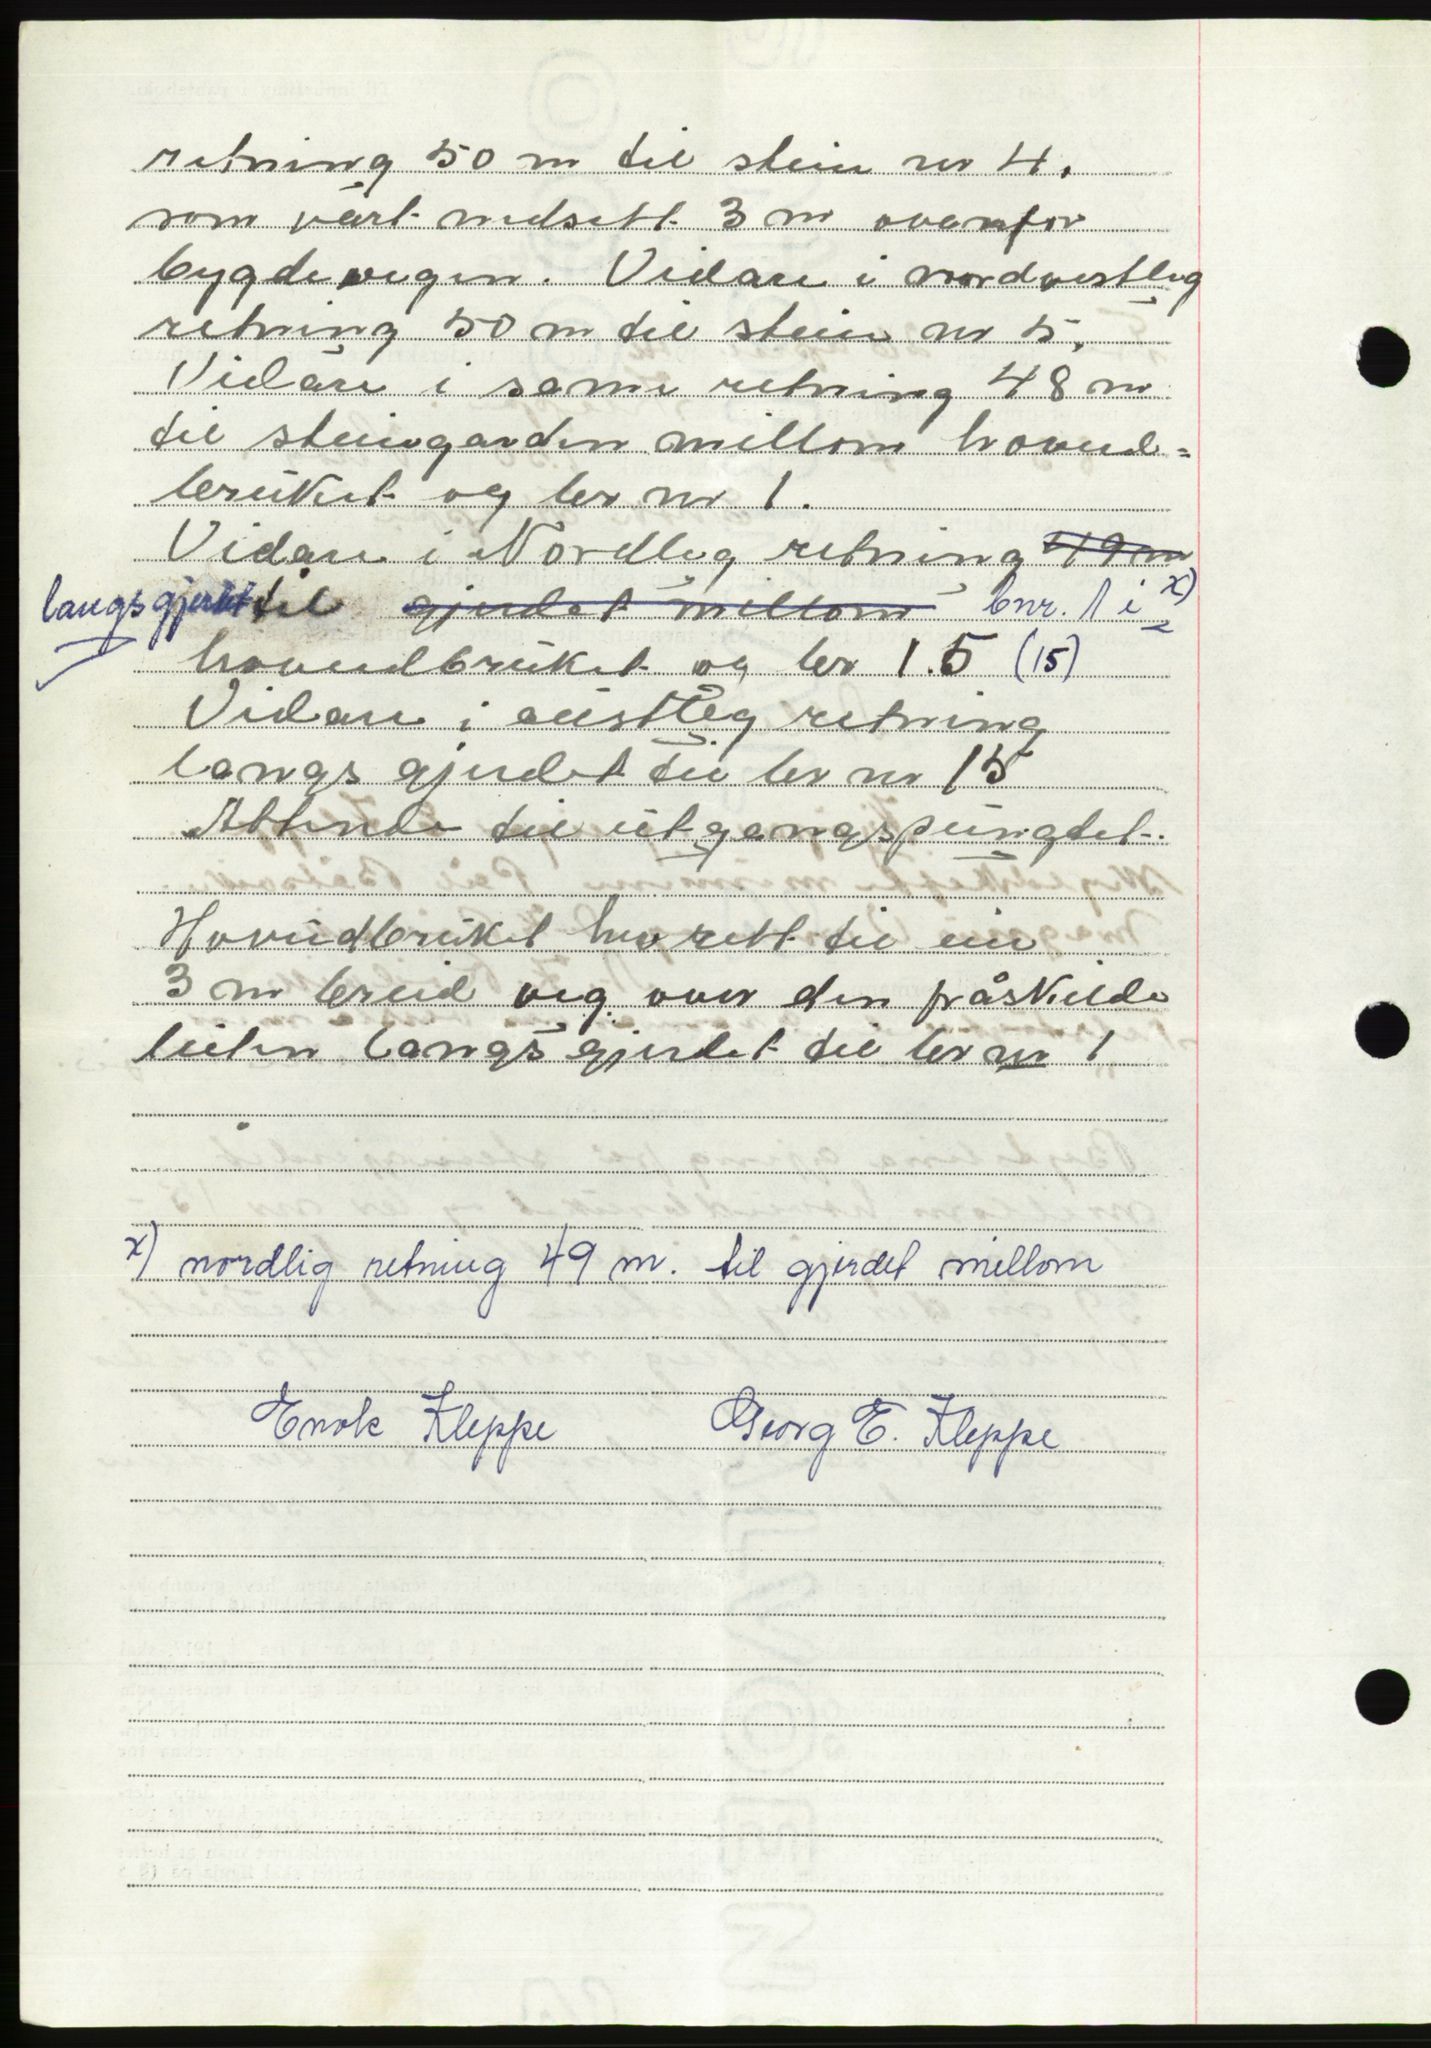 retning 50 m til stein nr 4.
som vart nedsett 3 m ovanfor
bygdevegen. Vidare i nordvestleg
retning 50 m til stein nr 5.
Vidare i same retning 48 m
til steingarden millom hovud=
bruket og br nr 1.
Vidare i Nordleg retning 49 m
langs gjerdet til gjerdet millom bnr. 1 i x)
hovudbruket og br 1.5 (15)
Vidare i austleg retning
langs gjerdet til br nr 15
Attende til utgangspungtet.
Hovudbruket har rett til ein
3 m breid veg over den fråskilde
luten langs gjerdet til br nr 1
x) nordlig retning 49 m. til gjerdet millom
Enok Kleppe Georg E. Kleppe